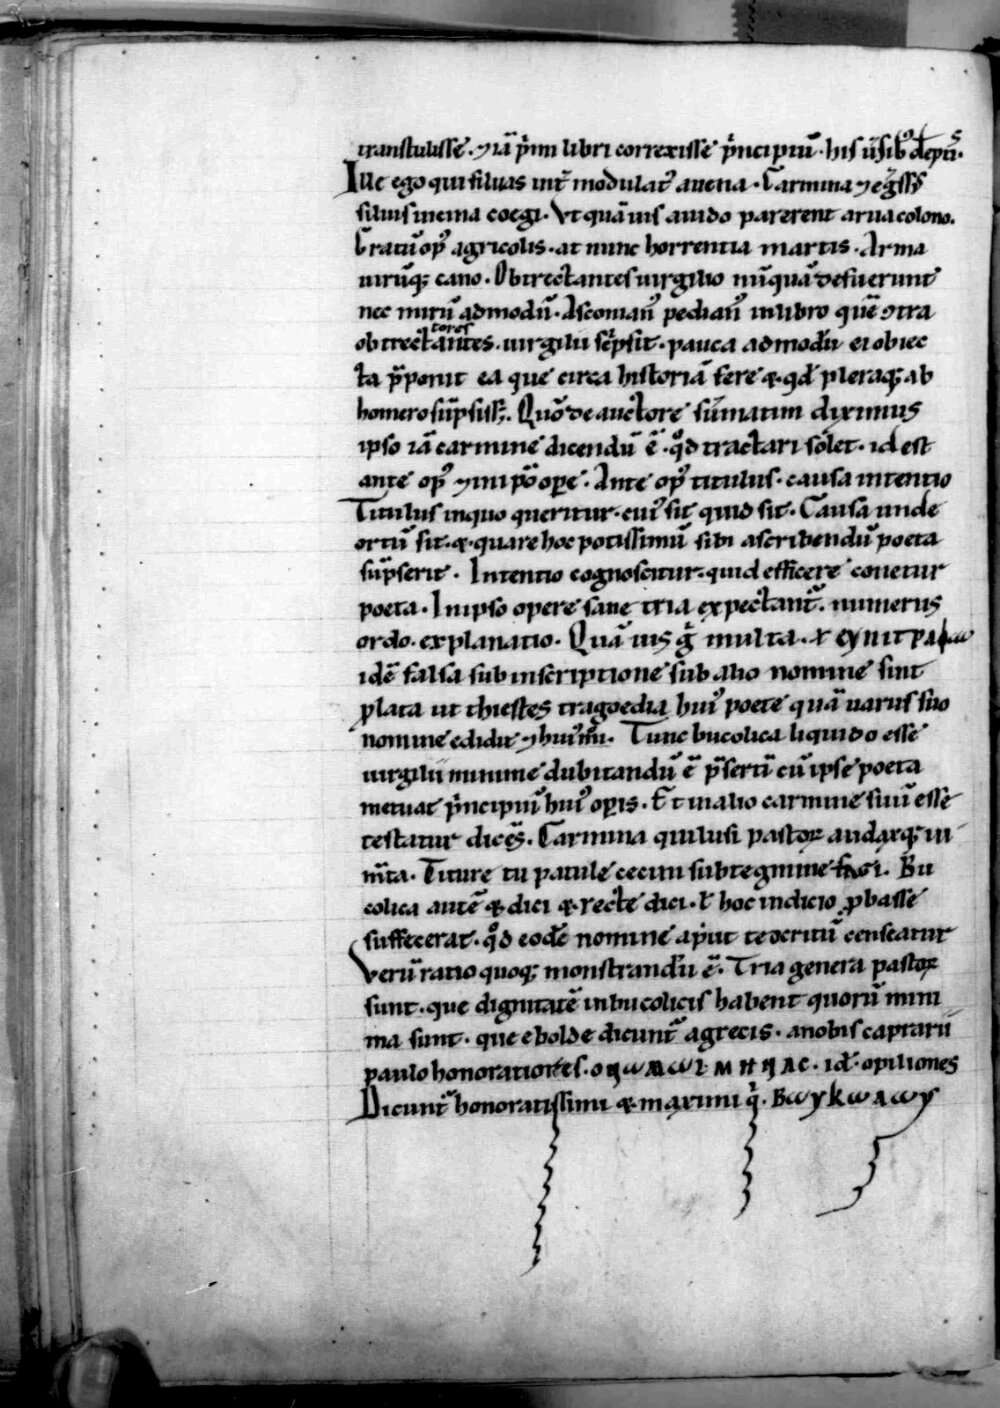 transtulisse. ⁊ iā p̄mi libri correxisse p̄ncipiū. his ūsib᷒ dēptis.
Ille ego qui siluas int̄ modulat᷒ auena. Carmina ⁊ eg̃ss᷒
siluis uicina coegi. Vt quāuis auido parerent arua colono.
Gratū op᷒ agricolis. at nunc horrentia martis. Arma
uirūq; cano. Obtrectantes uirgilio nūquā defuerunt
nec mirū admodū. Asconian᷒ pedian᷒ in libro quē ɔtra
tores
obtrectantes. uirgilii sc̄psit. pauca admodū ei obiec
ta p̄ponit ea que circa historiā fere & qd̄ pleraq; ab
homero sūpsiss;. Quō de auctore sūmatim diximus
ipso iā carmine dicendū ē. qd̄ tractari solet. id est
ante op᷒ ⁊ in ip̄o oꝑe. Ante op᷒ titulus. causa intentio
Titulus in quo queritur. cui᷒ sit quid sit. Causa unde
ortū sit. & quare hoc potissimū sibi ascribendū poeta
sūpserit. Intentio cognoscitur. quid efficere conetur
poeta. In ipso opere sane tria expectant̄. numerus
ordo. explanatio. Quāuis g̃ multa.
idē falsa sub inscriptione sub alio nomine sint
ꝓlata ut thiestes tragoedia hui᷒ poete quā uarus suo
nomine edidit ⁊ hui᷒m̄i. Tunc bucolica liquido esse
uirgilii minime dubitandū ē p̄sertī cū ipse poeta
metuat p̄ncipiū hui᷒ oꝑis. Et in alio carmine suū esse
testatur dicēs. Carmina qui lusi pastoꝝ audaxq; iu
uīta. Titure tu patule cecini sub tegmine fagi. Bu
colica autē & dici & recte dici. & hoc indicio ꝓbasse
suffecerat. qd̄ eodē nomine aput teocritū censeatur
Verū ratio quoq; monstrandū ē. Tria genera pastoꝝ
sunt. que dignitatē in bucolicis habent quorū mini
ma sunt. que ebolde dicunt̄ a grecis. a nobis caprarii
paulo honoratiores. id̄. opiliones
Dicunt̄ honoratissimi & maximi q̄.